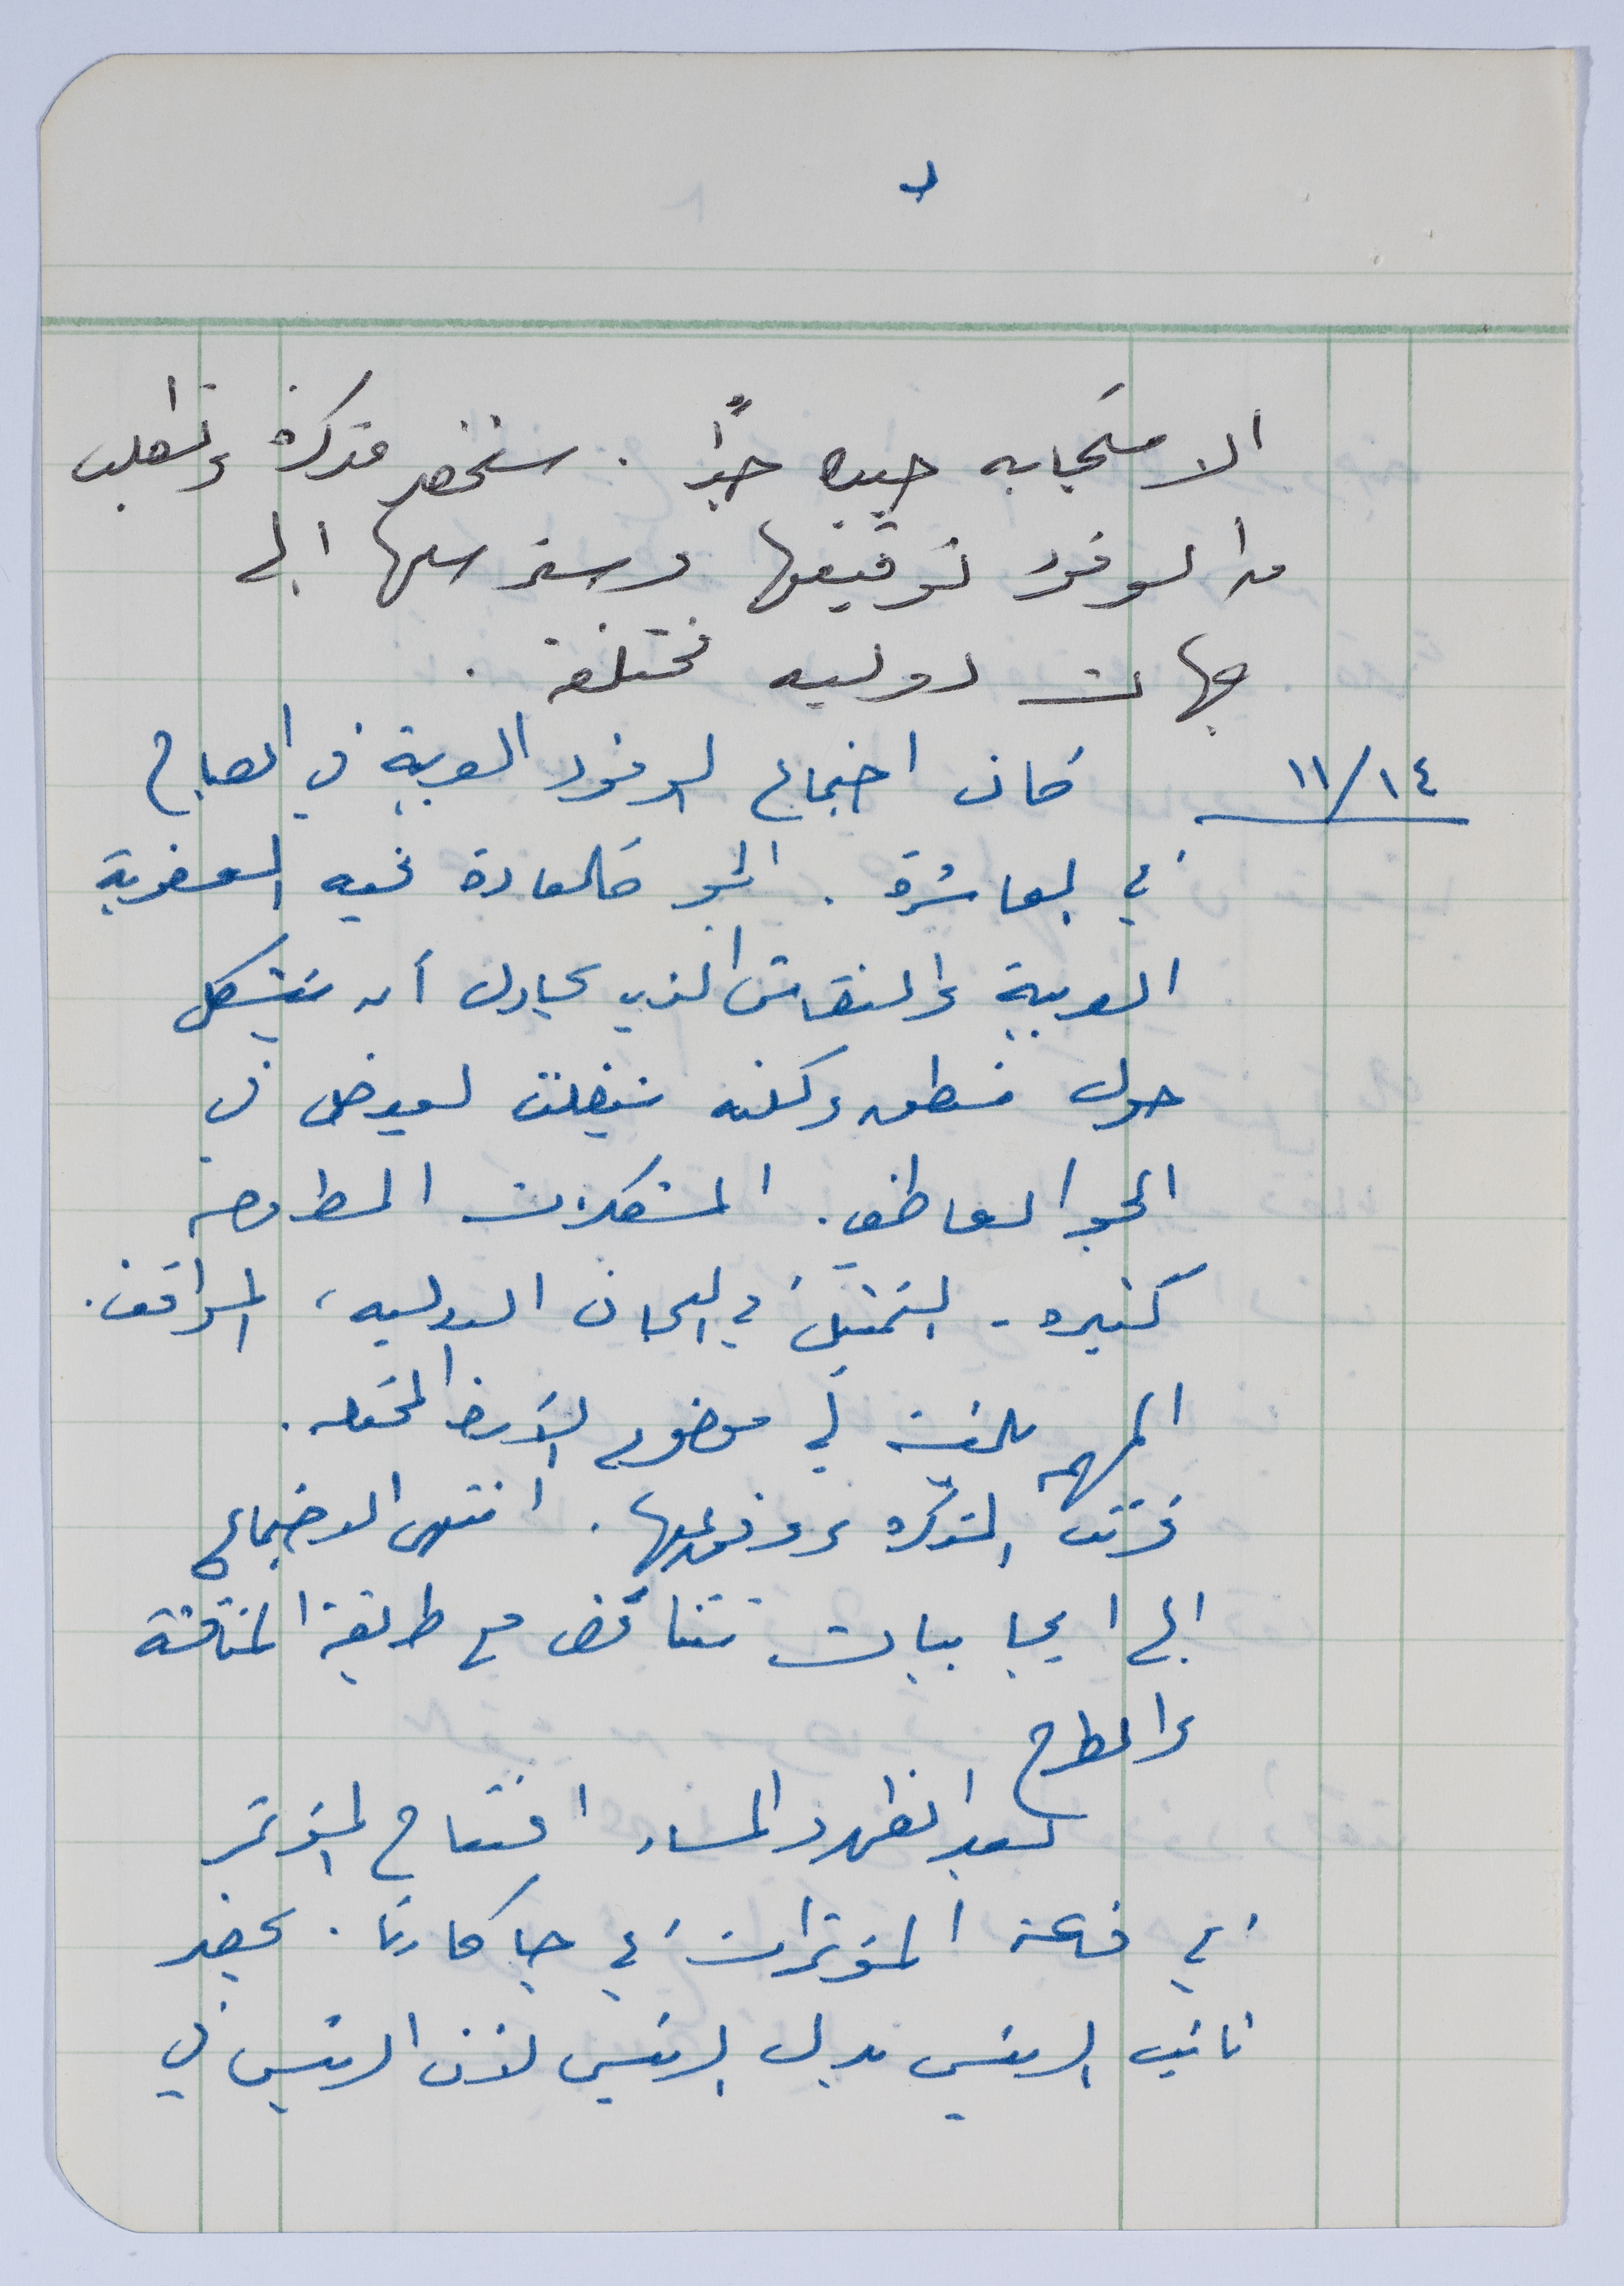 د
الاستجابه جيده جداً . سنحضر مذكرة ونطلب
من الوفود توقيعها وسنرسلها الى
جهات دوليه مختلفة .
١١/١٤ كان اجتماع الوفود العربية في الصباح
في العاشرة . الجو كالعادة فيه العفوية
العربية والنقاش الذي يحاول أن يتشكل
حول منطق ولكنه ينفلت ليعوض في
الجو العاطفي . المشكلات المطروحه
كثيره - التمثيل في اللجان الدوليه ، المواقف .
المهمه في موضوع الأرض المحتله .
قرئت المذكره ووفق عليها . انتهى الاجتماع
الى ايجابيات تتناقض مع طريقة المناقشة
والطرح
بعد الظهر والمساء افتتاح المؤتمر
في قاعة المؤتمرات في جاكارتا . يحضر
نائب الرئيس بدل الرئيس لأن الرئيس في